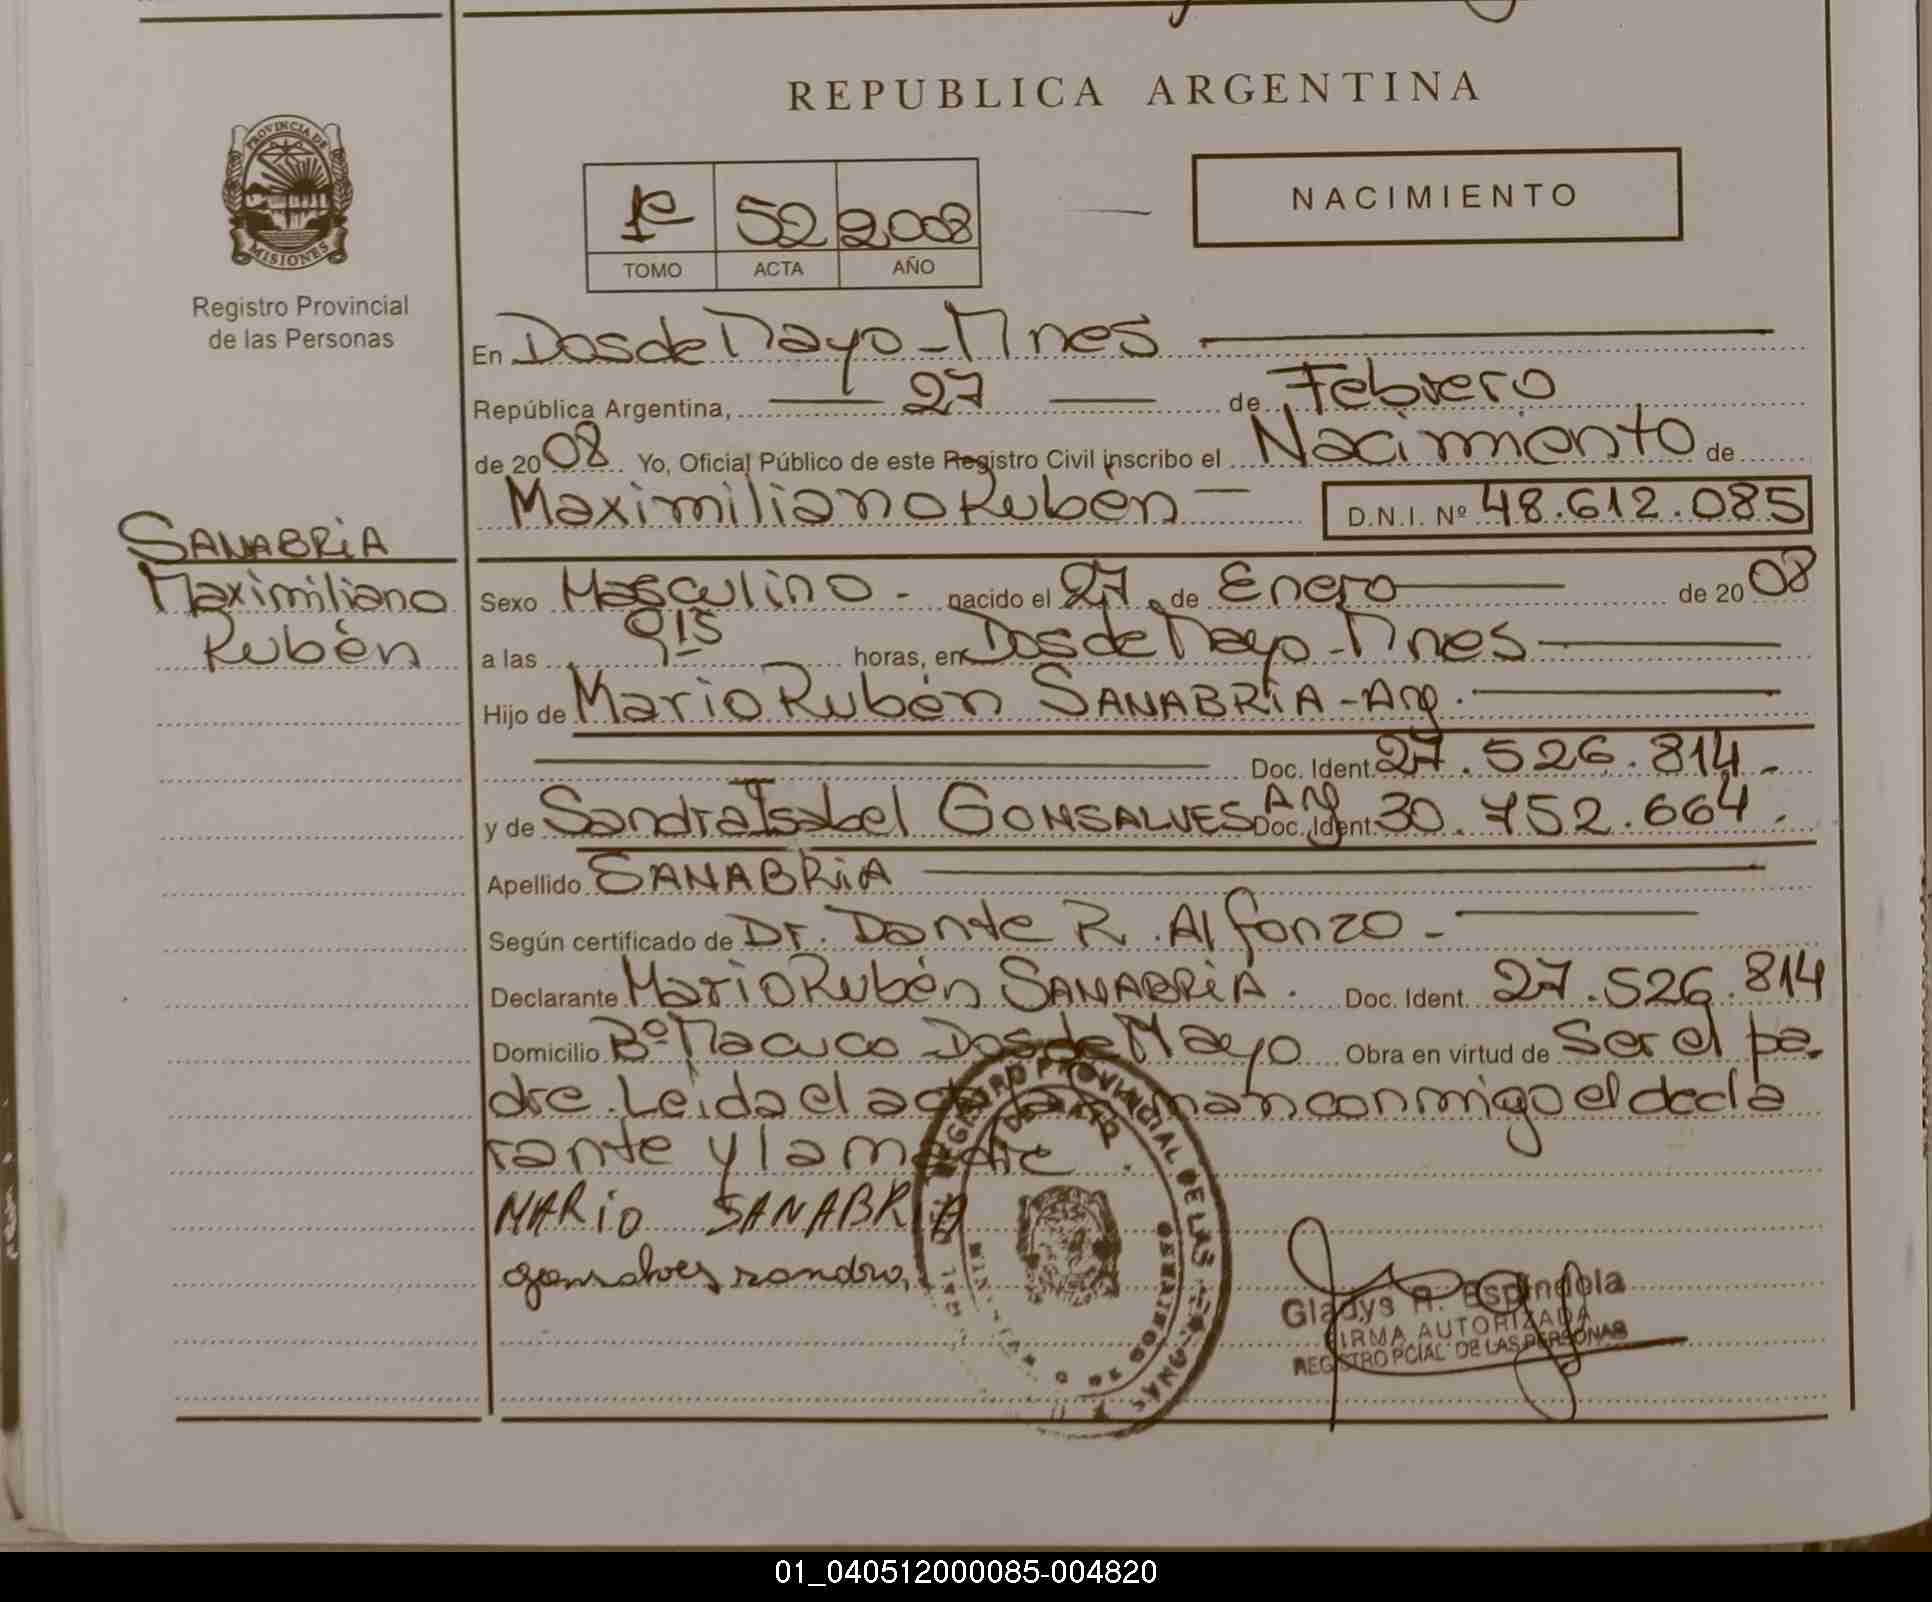 REPUBLICA ARGENTINA
PROVINCIA DE
MISIONES
Registro Provincial
de las Personas
1º 52 2008
TOMO ACTA AÑO
NACIMIENTO
En Dos de Mayo - Mnes
República Argentina, 27 de Febrero
de 2008 Yo, Oficial Público de este Registro Civil inscribo el Nacimiento de
Maximiliano Rubén D.N.I. Nº 48.612.085
SANABRiA
Maximiliano
Rubén
Sexo Masculino - nacido el 27 de Enero de 2008
a las 9 15 horas, en Dos de Mayo - Mnes
Hijo de Mario Rubén SANABRiA - Arg.
Doc. Ident. 27.526.814 -
y de Sandra Isabel GONSALVES Arg Doc. Ident. 30.752.664.
Apellido SANABRiA
Según certificado de Dr. Dante R. Alfonzo -
Declarante Mario Rubén SANABRiA. Doc. Ident. 27.526.814
Domicilio Bº Macuco Dos de Mayo Obra en virtud de Ser el pa-
dre. Leida el acta firman conmigo el decla
rante y la madre.
MARiO SANABRiA
gonsalves sandra
REGISTRO PROVINCIAL DE LAS PERSONAS
Gladys A. Espindola
FIRMA AUTORIZADA
REGISTRO PCIAL. DE LAS PERSONAS
01_040512000085-004820